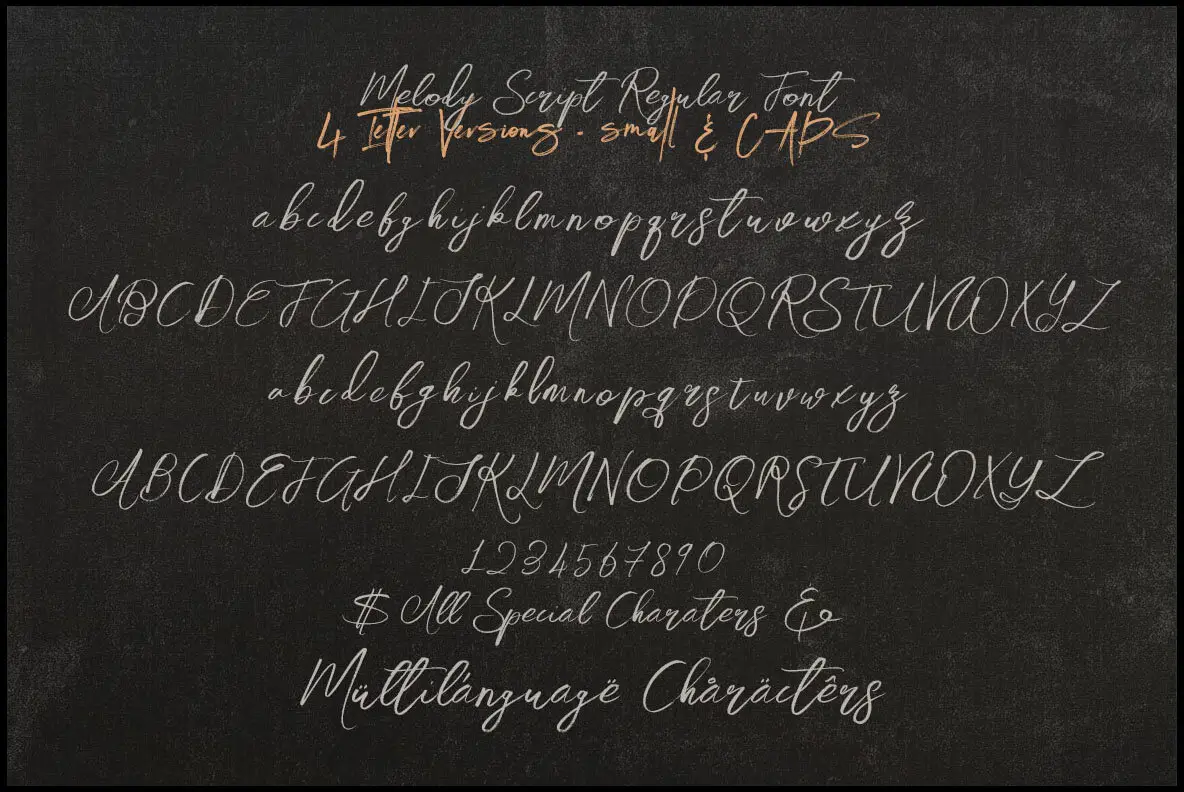 Melody Script Regular Font
4 Letter Versions - small & CAPS
abcdefghijklmnopqrstuvwxyz
ABCDEFGHIJKLMNOPQRSTUVWXYZ
abcdefghijklmnopqrstuvwxyz
ABCDEFGHIJKLMNOPQRSTUVWXYZ
1234567890
$ All Special Charaters &
Mülttilánguagë Chåräctêrs